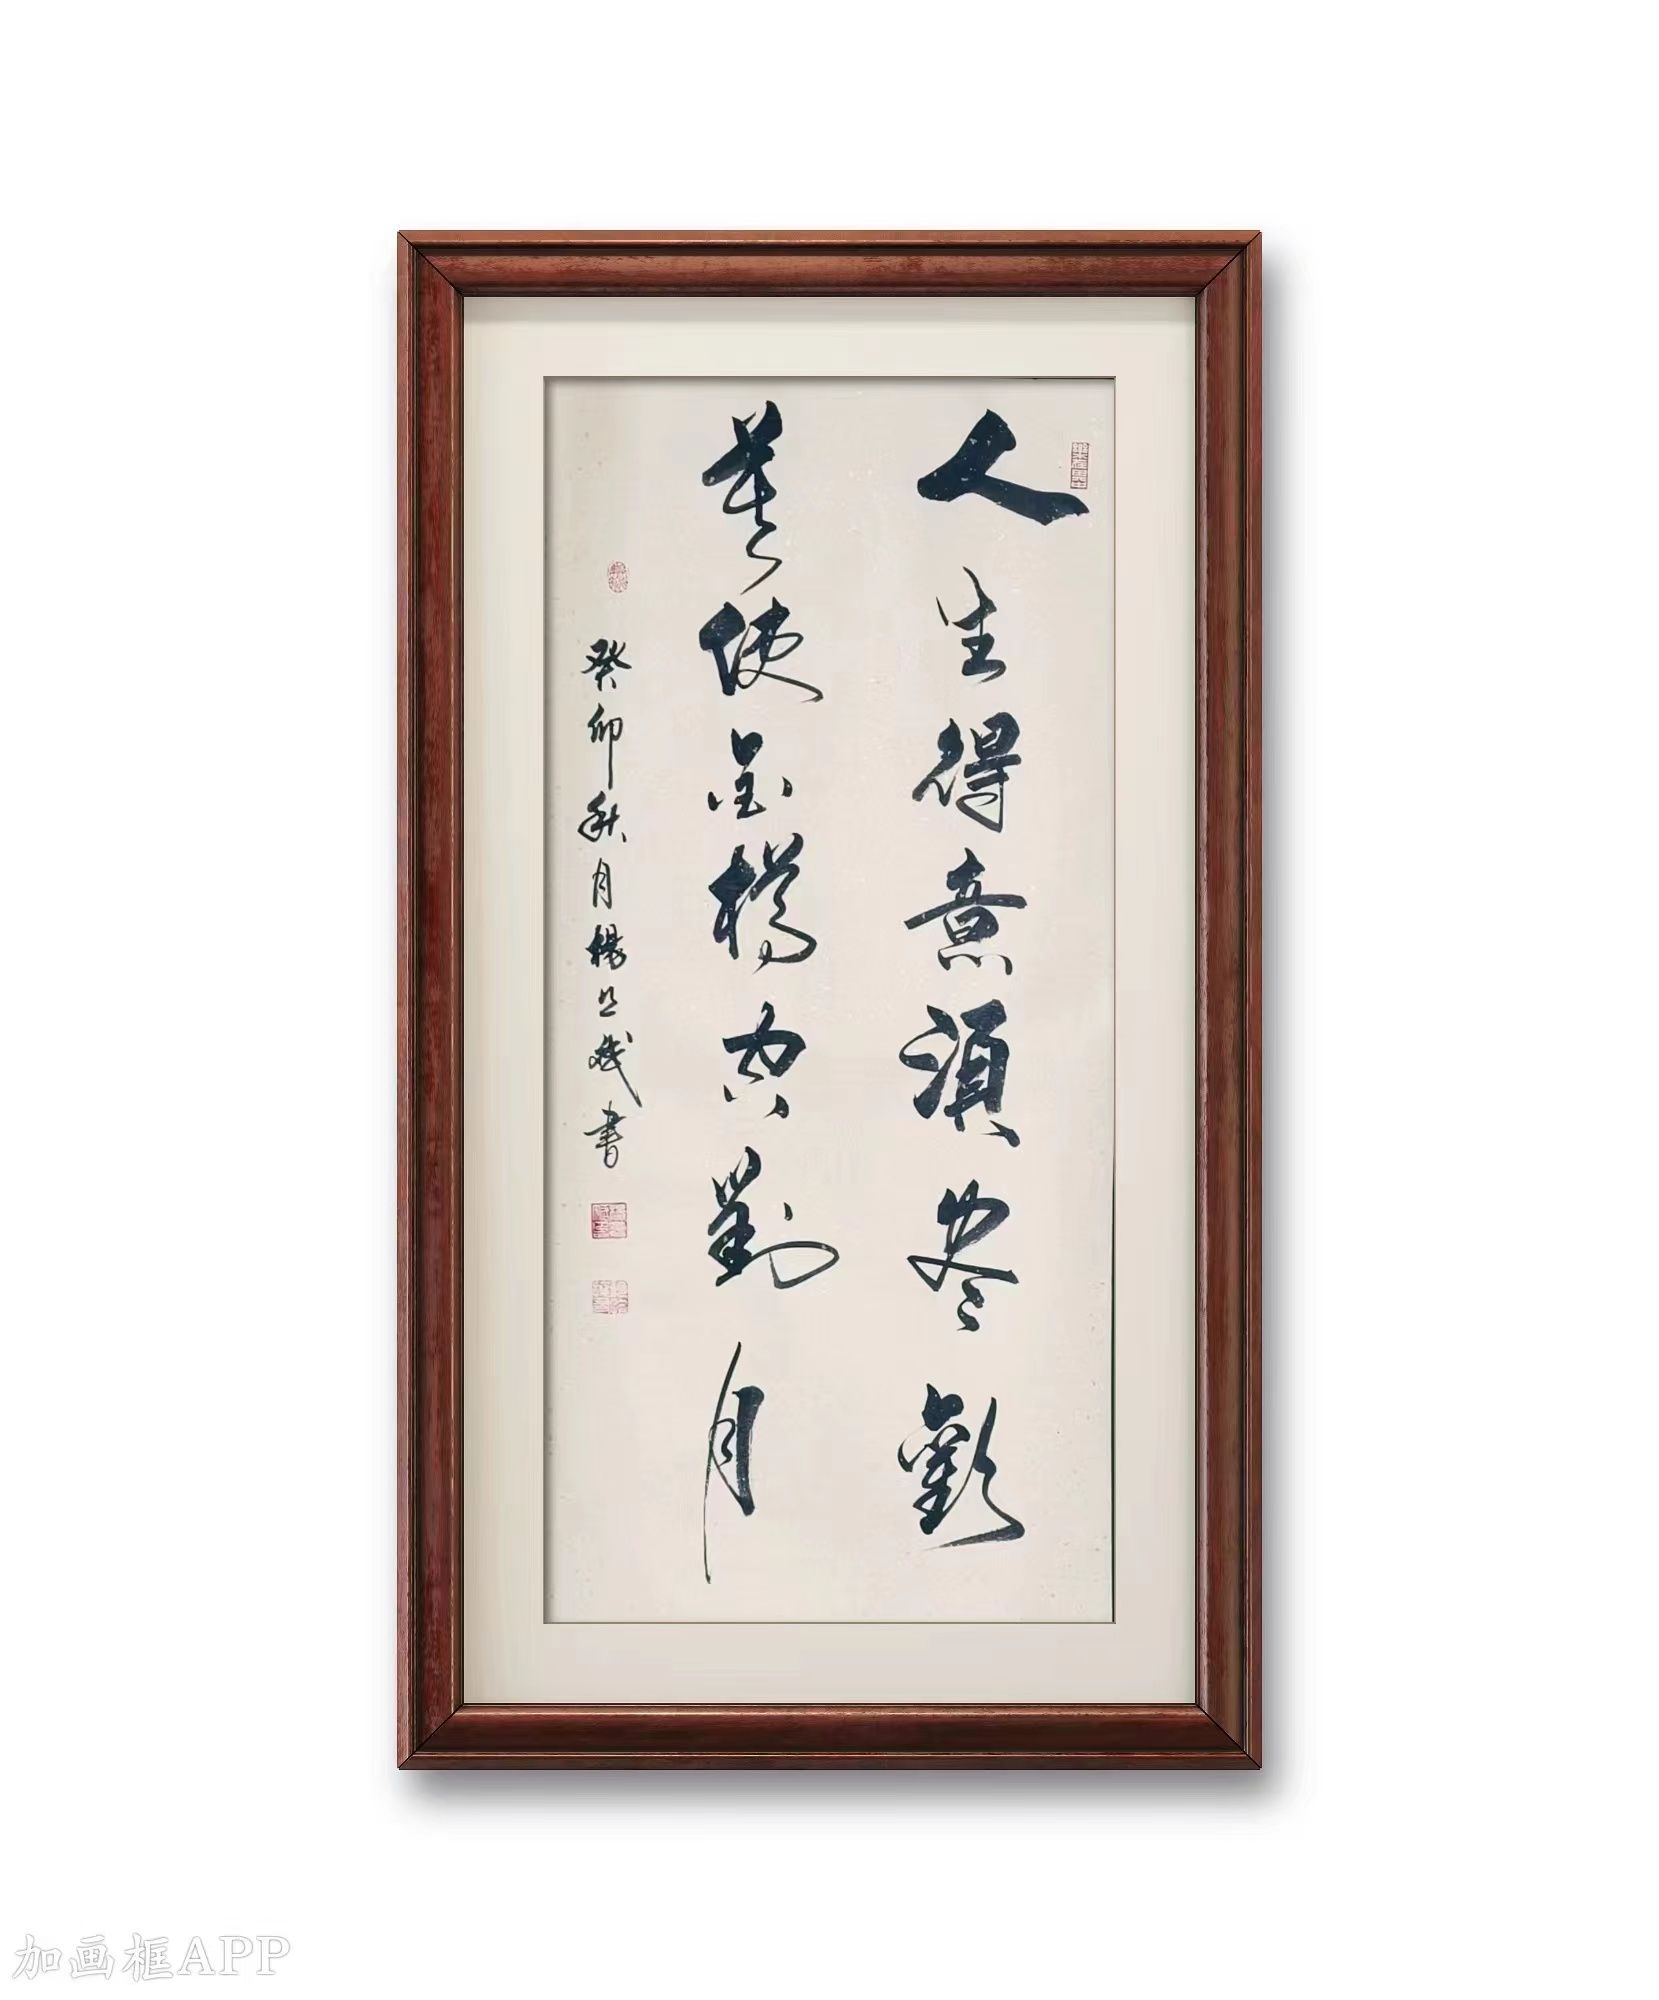 人生得意须尽歡
莫使金樽空對月
癸卯秋月楊
書
加画框APP